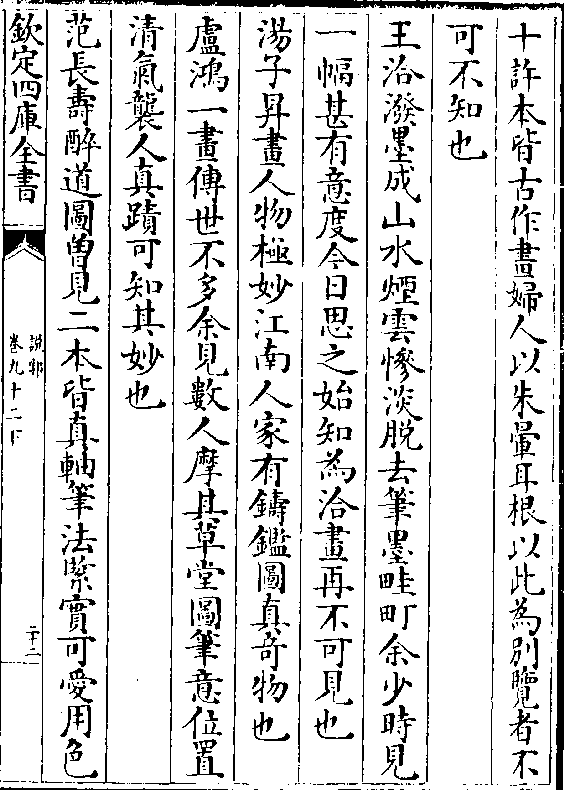 十許本皆古作畫婦人以朱暈耳根以此為別覽者不
可不知也
王洽潑墨成山水煙雲慘淡脱去筆墨畦町余少時見
一幅甚有意度今日思之始知為洽畫再不可見也
湯子昇畫人物極妙江南人家有鑄鑑圖真奇物也
盧鴻一畫傳世不多余見數人摩其草堂圖筆意位置
清氣襲人真蹟可知其妙也
范長壽醉道圖曽見二本皆真軸筆法緊實可愛用色
欽定四庫全書
說郛
卷九十二下
二十二